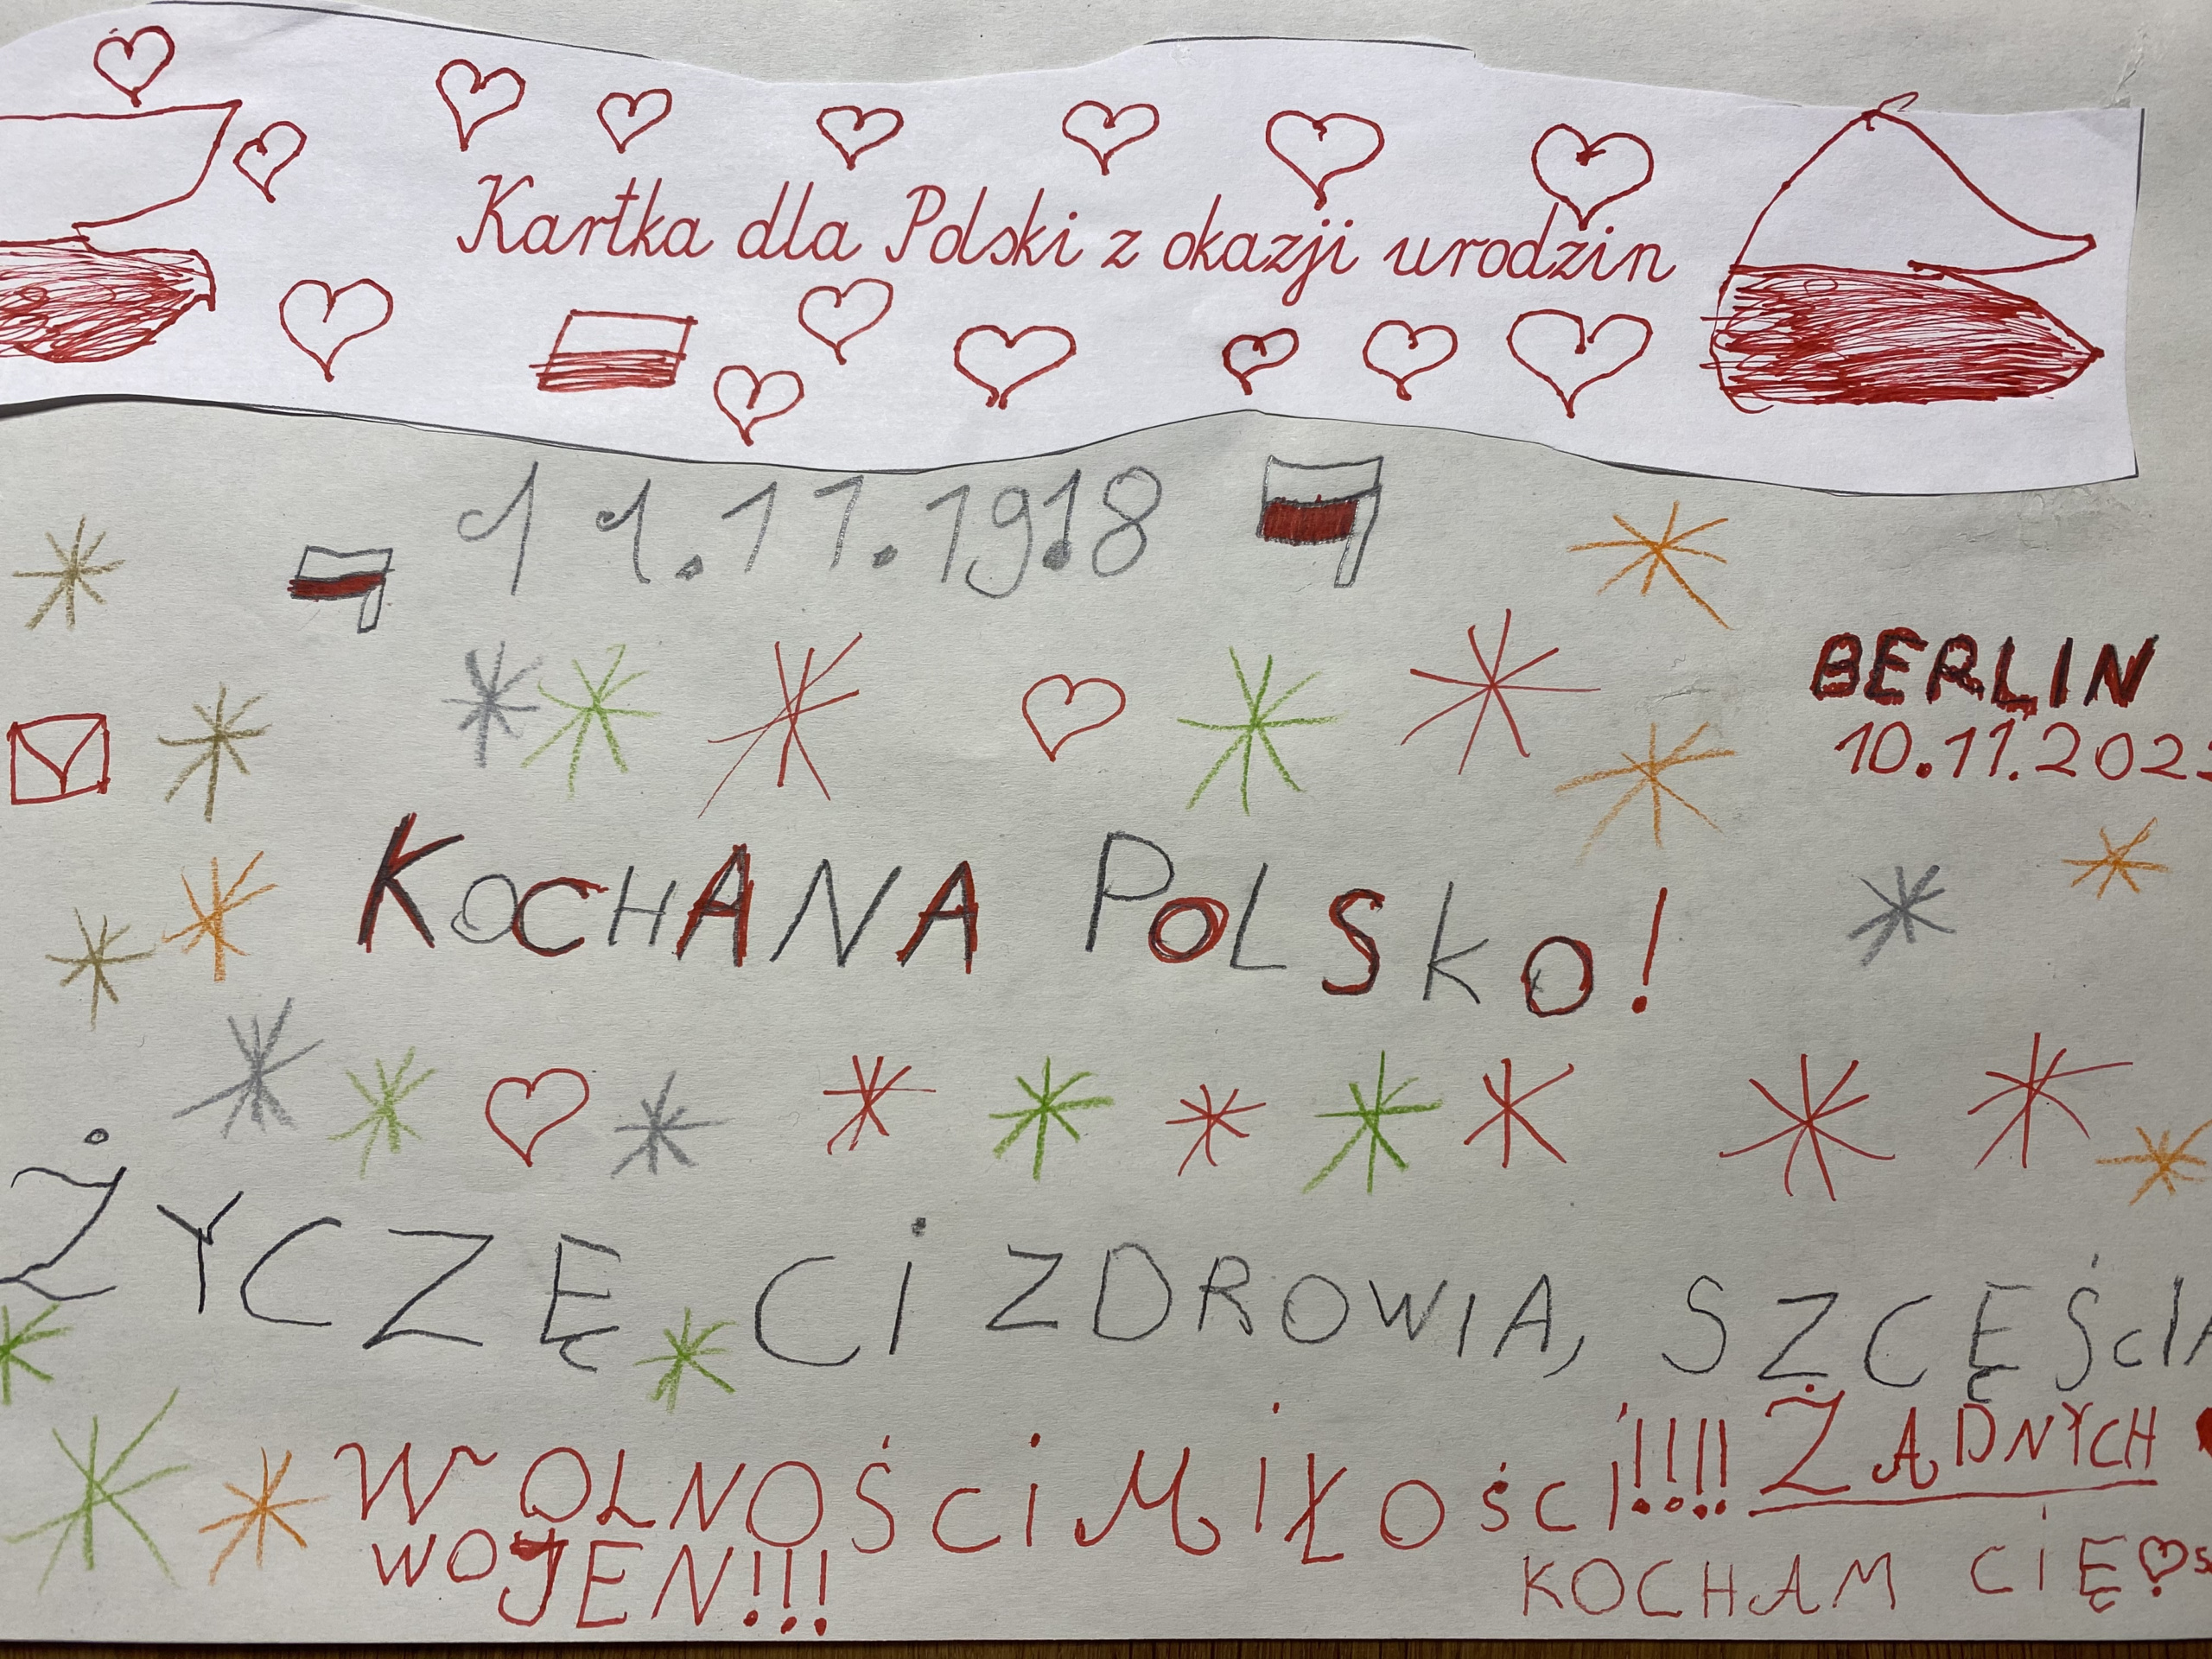 Kartka dla Polski z okazji urodzin
11.11.1918
BERLIN
10.11.202
KOCHANA POLSKO!
ŻYCZĘ CI ZDROWIA, SZCĘŚCIA
WOLNOŚCI MIŁOŚCI!!!! ŻADNYCH
WOJEN!!!
KOCHAM CIĘ